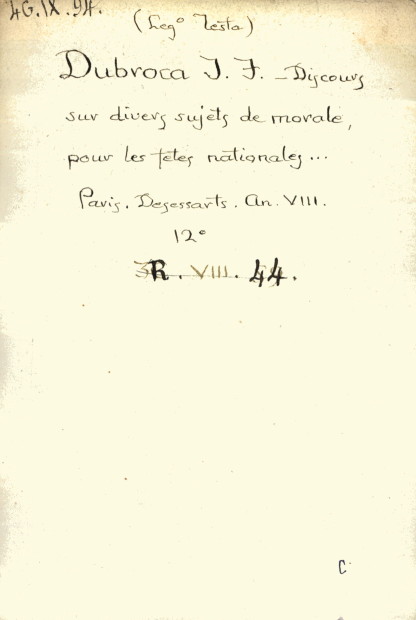 4G.IX.94.
(Leg° Testa)
Dubroca J. F. - Discours
sur divers sujets de morale,
pour les fêtes nationales...
Paris. Desessarts. An. VIII.
12°
R. VIII. 44.
C